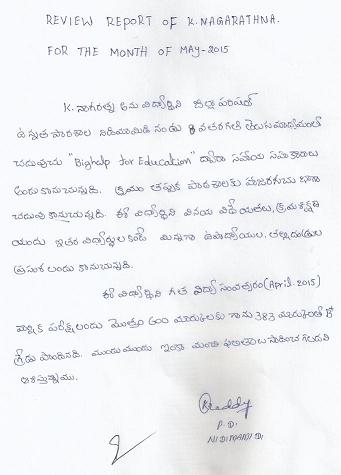 REVIEW REPORT OF K.NAGARATHNA.
FOR THE MONTH OF MAY-2015
K. నాగరత్న అను విద్యార్థిని జిల్లా పరిషత్
ఉన్నత పాఠశాల నిడిమామిడి నందు 8 వ తరగతి తెలుగు మాధ్యమంలో
చదువుచు "Bighelp for Education" ద్వారా సహాయ సహకారాలు
అందుకొనుచున్నది. క్రమం తప్పక పాఠశాలకు హాజరగుచు బాగా
చదువు కొనుచున్నది. ఈ విద్యార్థిని వినయ విధేయతలు, క్రమశిక్షణ
యందు ఇతర విద్యార్థుల కంటే మిన్నగా ఉపాధ్యాయుల, తల్లిదండ్రుల
ప్రశంసలందు కొనుచున్నది.
ఈ విద్యార్థిని గత విద్యా సంవత్సరం (April. 2015)
వార్షిక పరీక్షలందు మొత్తం 600 మార్కులకు గాను 383 మార్కులతో B+
గ్రేడు పొందినది. ముందుముందు ఇంకా మంచి ఫలితాలు సాధించ గలదని
ఆశిస్తున్నాము.
P.D.
NIDIMAMIDI